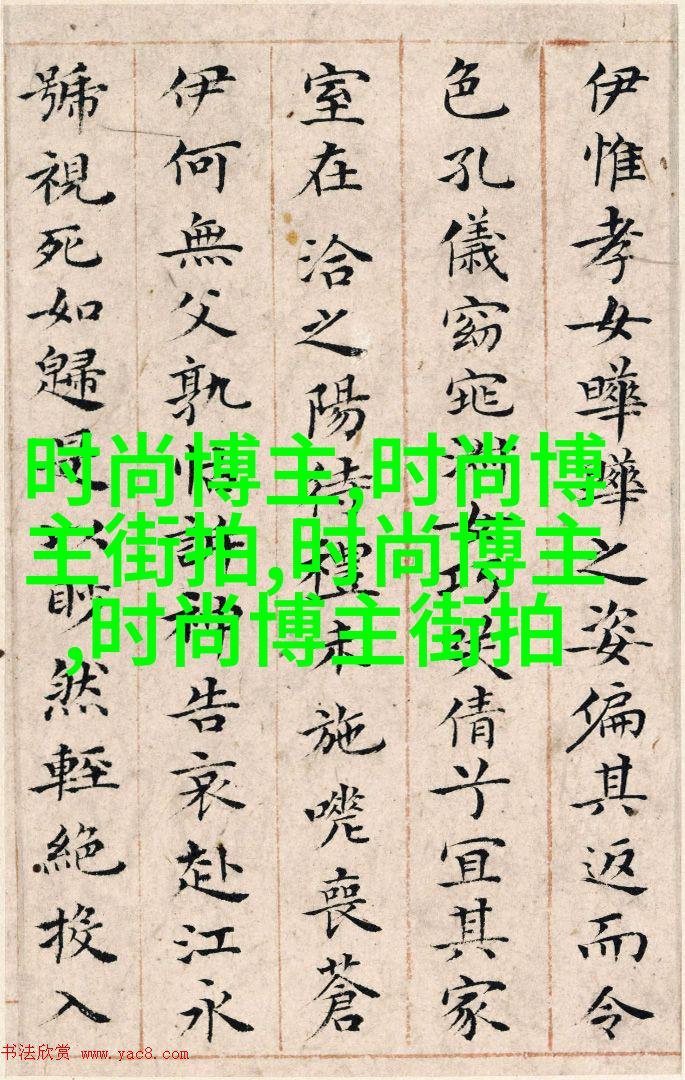 伊惟孝女曄曄之姿偏其返而令
色孔儀窈窕淑女巧笑倩兮宜其家
室在洽之陽待禮未施嗟喪蒼
伊何無父孰怙訴神告哀赴江永
號視死如歸是以眇然輕絕投入
时尚博主,时尚博
主街拍,时尚博主
,时尚博主街拍
书法欣赏 www.yac8.com